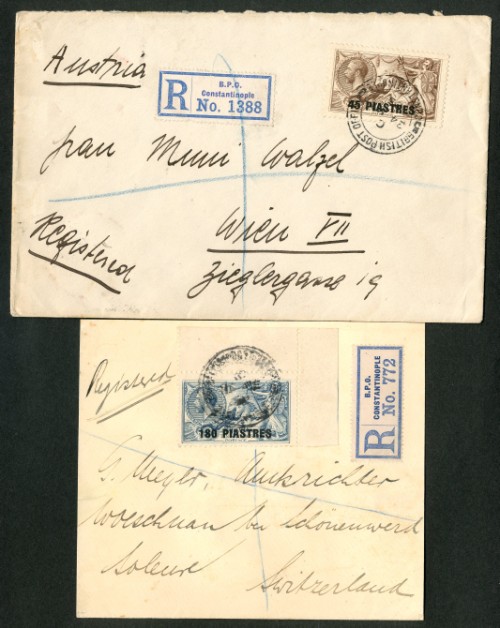 Austria
B.P.O.
Constantinople
R No. 1388
45 PIASTRES
BRITISH POST OFF
Frau Mimi Walzel
Wien VII
Registered
Zieglergasse 19
Registered
180 PIASTRES
B.P.O.
CONSTANTINOPLE
R No. 772
G. Meyer, Amtsrichter
bei Schönenwerd
Soleure
Switzerland